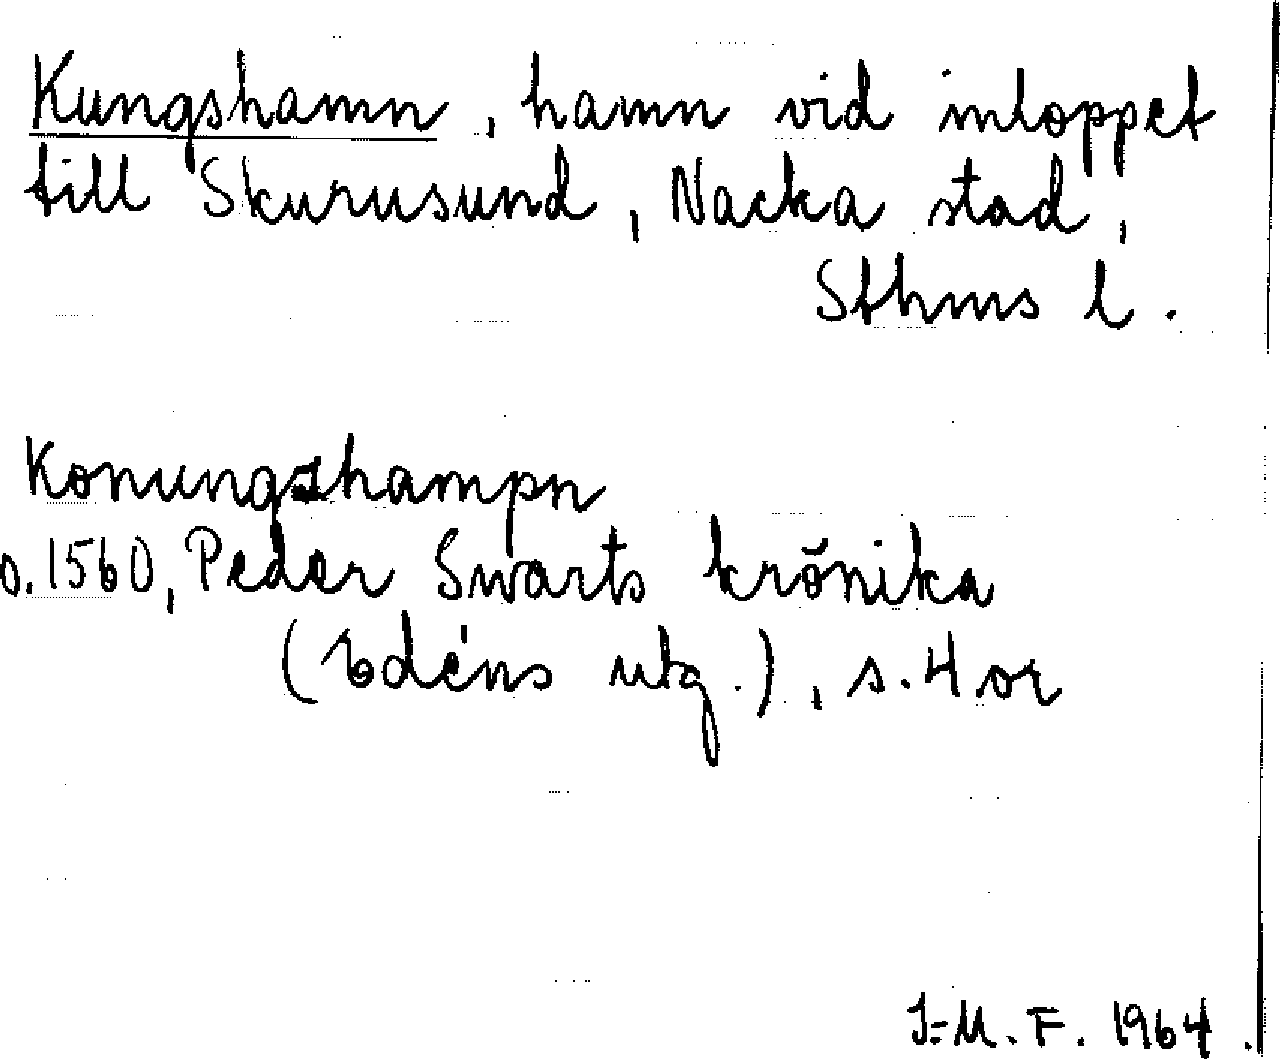 Kungshamn, hamn vid inloppet
till Skurusund, Nacka stad,
Sthms l.
Konungshampn
o. 1560, Peder Swarts krönika
(Edéns utg.), s. 4 or
I-M. F. 1964.